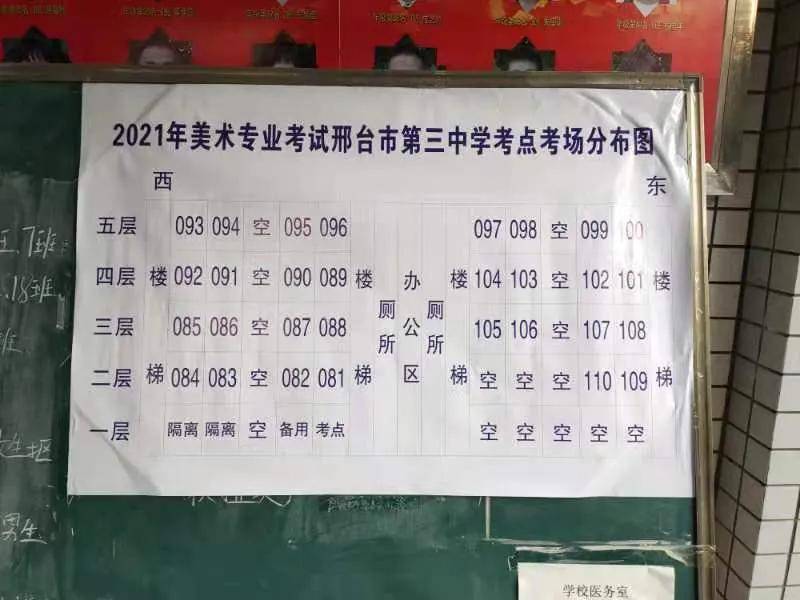 2021年美术专业考试邢台市第三中学考点考场分布图
西 东
五层 093 094 空 095 096 097 098 空 099 100
四层 楼 092 091 空 090 089 楼 厕所 办公区 厕所 楼 104 103 空 102 101 楼
三层 085 086 空 087 088 105 106 空 107 108
二层 梯 084 083 空 082 081 梯 梯 空 空 空 110 109 梯
一层 隔离 隔离 空 备用 考点 空 空 空 空 空
7班
18班
班
男生
学校医务室